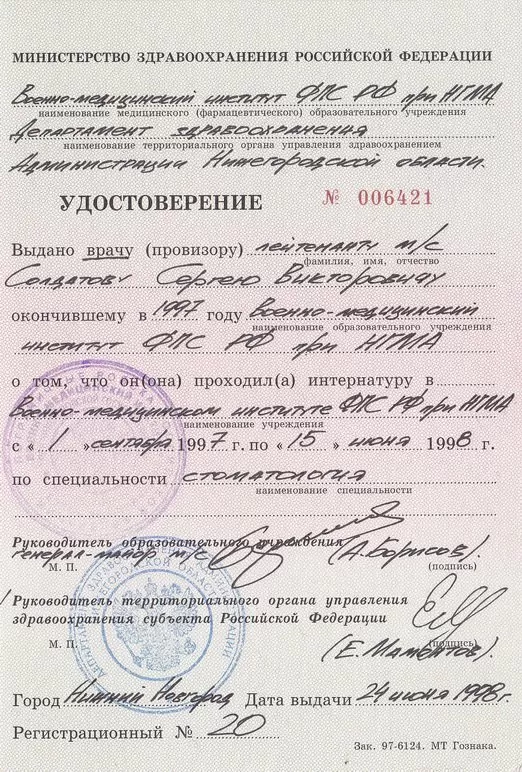 МИНИСТЕРСТВО ЗДРАВООХРАНЕНИЯ РОССИЙСКОЙ ФЕДЕРАЦИИ
Военно-медицинский институт ФПС РФ при НГМА
наименование медицинского (фармацевтического) образовательного учреждения
Департамент здравоохранения
наименование территориального органа управления здравоохранением
Администрации Нижегородской области.
УДОСТОВЕРЕНИЕ № 006421
Выдано врачу (провизору) лейтенанту м/с
фамилия, имя, отчество
Солдатову Сергею Викторовичу
окончившему в 1997 году Военно-медицинский
наименование образовательного учреждения
институт ФПС РФ при НГМА
о том, что он(она) проходил(а) интернатуру в
Военно-медицинском институте ФПС РФ при НГМА
наименование учреждения
с « 1 » сентября 1997 г. по « 15 » июня 1998 г.
по специальности стоматология
наименование специальности
Руководитель образовательного учреждения
генерал-майор м/с (А.Борисов).
М. П. (подпись)
Руководитель территориального органа управления
здравоохранения субъекта Российской Федерации
М. П. (подпись)
(Е. Мамонтов).
Город Нижний Новгород Дата выдачи 24 июня 1998г.
Регистрационный № 20
Зак. 97-6124. МТ Гознака.